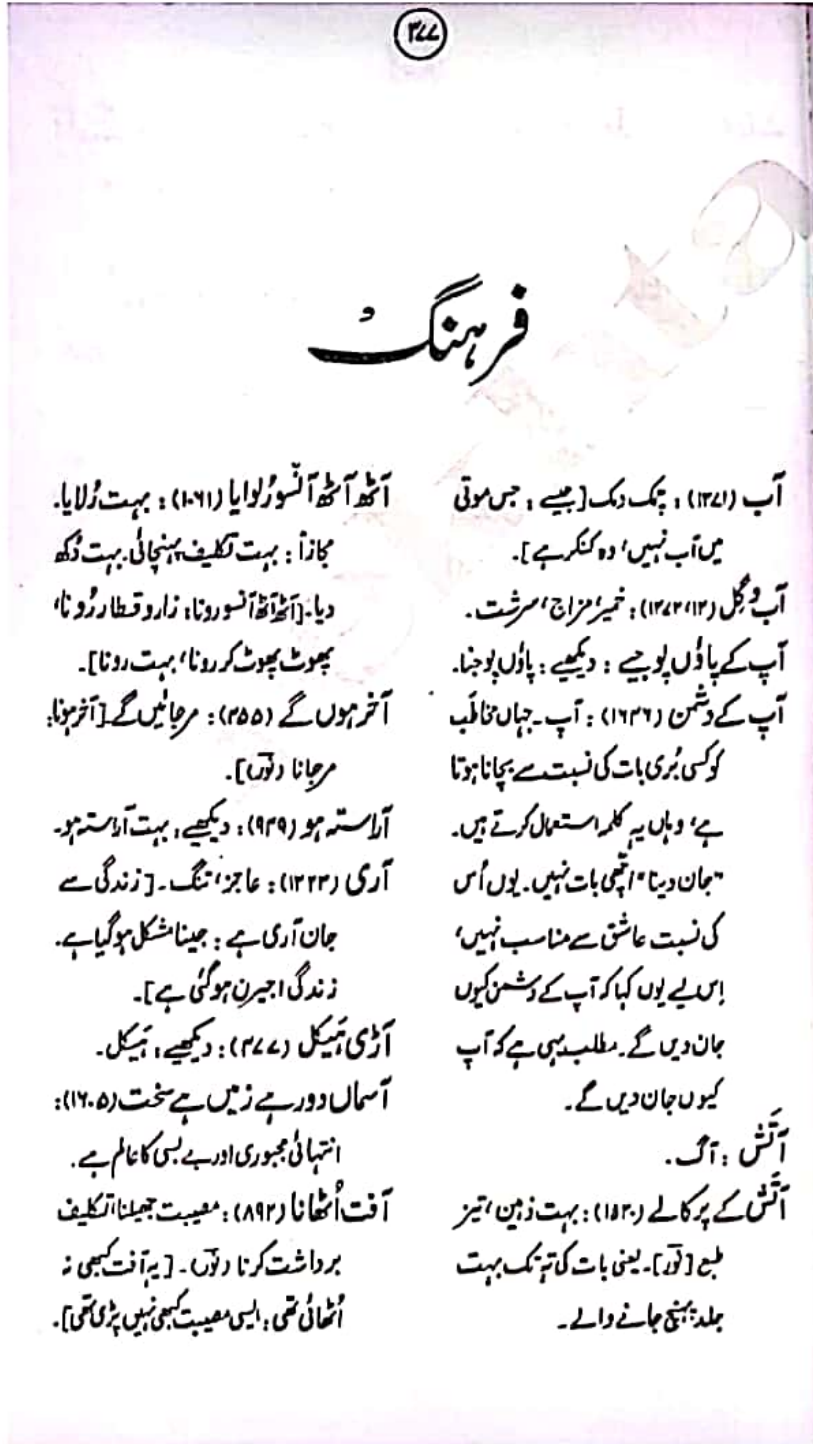 ۳۷۷
فرہنگ
آب (۱۳۷۱): چمک دمک [جیسے: جس موتی
میں آب نہیں، وہ کنکر ہے]۔
آب و گِل (۱۳۷۲،۱۲): خمیر، مزاج، سرشت۔
آپ کے پاؤں پوجیے: دیکھیے: پاؤں پوجنا۔
آپ کے دشمن (۱۶۳۶): آپ۔ جہاں مخاطَب
کو کسی بُری بات کی نسبت سے بچانا ہوتا
ہے، وہاں یہ کلمہ استعمال کرتے ہیں۔
"جان دینا" اچھی بات نہیں۔ یوں اُس
کی نسبت عاشق سے مناسب نہیں،
اِس لیے یوں کہا کہ آپ کے دشمن کیوں
جان دیں گے۔ مطلب یہی ہے کہ آپ
کیوں جان دیں گے۔
آتَش: آگ۔
آتَش کے پرکالے (۱۵۲۰): بہت ذہین، تیز
طبع [نور]۔ یعنی بات کی تہ تک بہت
جلد پہنچ جانے والے۔
آٹھ آٹھ آنسو رُلوایا (۱۰۶۱): بہت رُلایا۔
مجازاً: بہت تکلیف پہنچائی، بہت دُکھ
دیا۔ [آٹھ آٹھ آنسو رونا: زار و قطار رونا،
پھوٹ پھوٹ کر رونا، بہت رونا]۔
آخر ہوں گے (۳۵۵): مرجائیں گے [آخر ہونا:
مرجانا (نور)]۔
آراستہ ہو (۹۳۹): دیکھیے: بہت آراستہ ہو۔
آری (۱۲۲۳): عاجز، تنگ۔ [زندگی سے
جان آری ہے: جینا مشکل ہوگیا ہے۔
زندگی اجیرن ہوگئی ہے]۔
آڑی ہَیکل (۳۷۷): دیکھیے: ہَیکل۔
آسماں دور ہے زمیں ہے سخت (۱۶۰۵):
انتہائی مجبوری اور بے بسی کا عالم ہے۔
آفت اُٹھانا (۸۹۲): مصیبت جھیلنا، تکلیف
برداشت کرنا (نور)۔ [یہ آفت کبھی نہ
اُٹھائی تھی: ایسی مصیبت کبھی نہیں پڑی تھی]۔